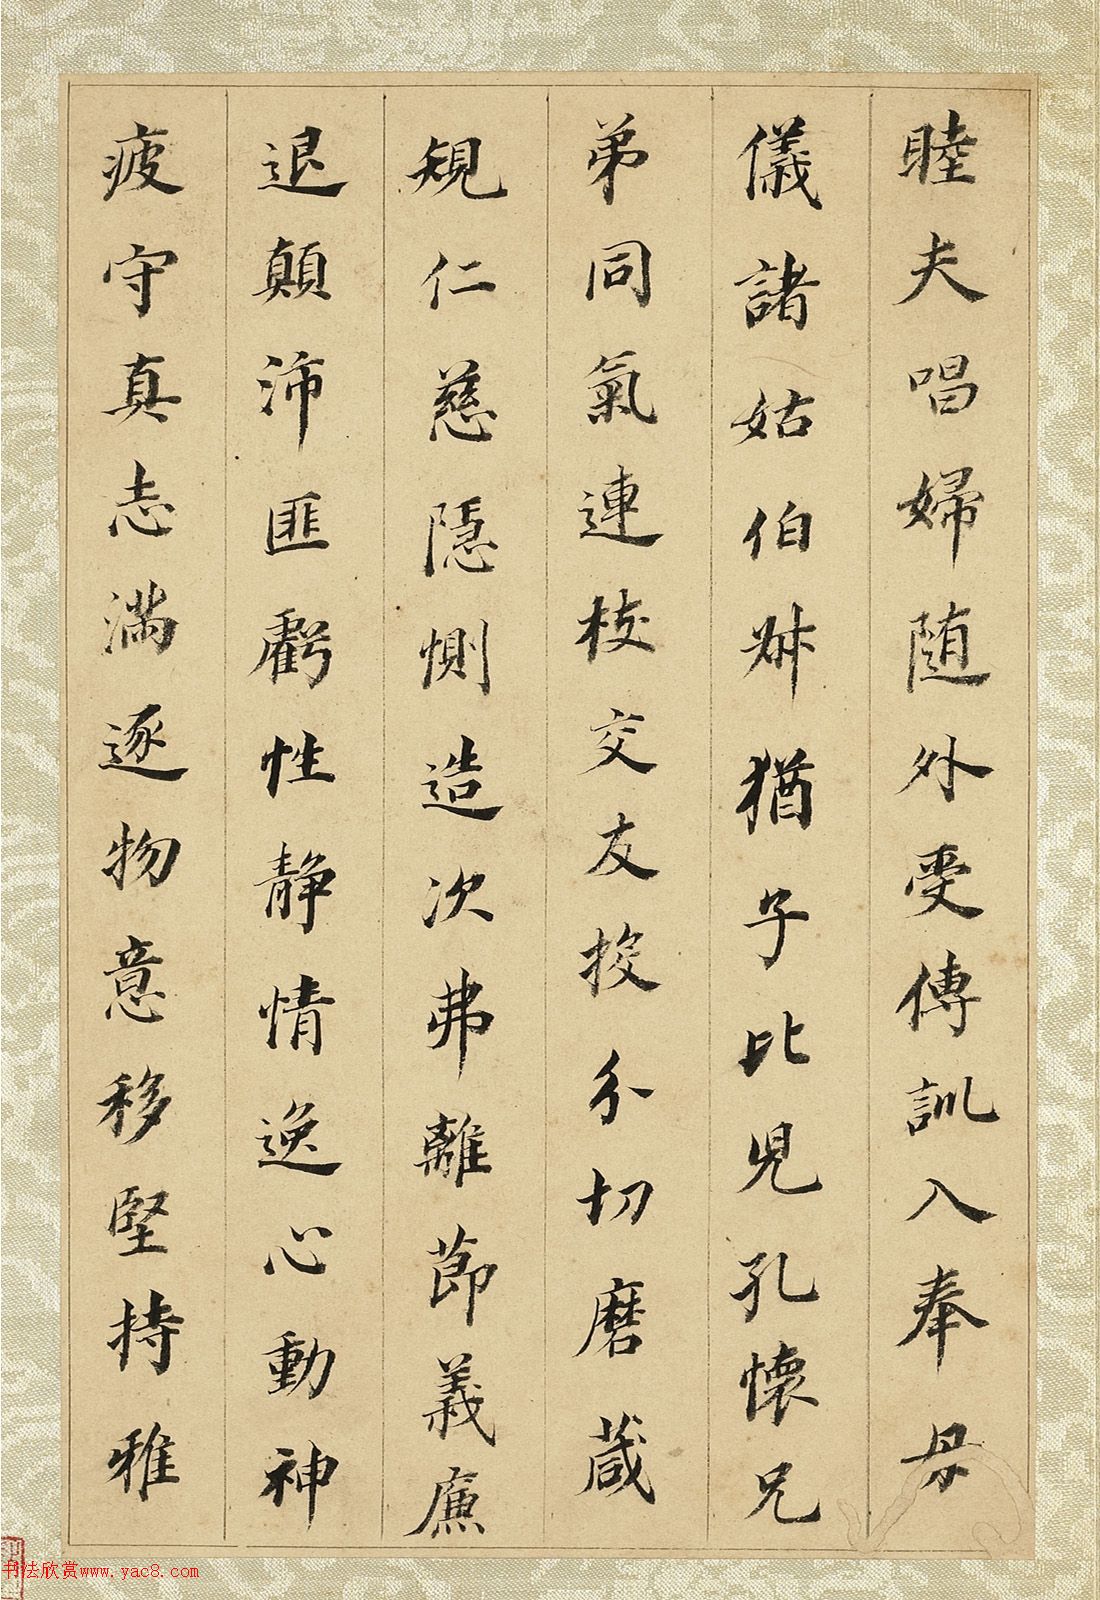 睦夫唱婦随外受傅訓入奉母
儀諸姑伯叔猶子比兒孔懷兄
弟同氣連枝交友投分切磨葴
規仁慈隱惻造次弗離節義廉
退顛沛匪虧性静情逸心動神
疲守真志満逐物意移堅持雅
书法欣赏www.yac8.com